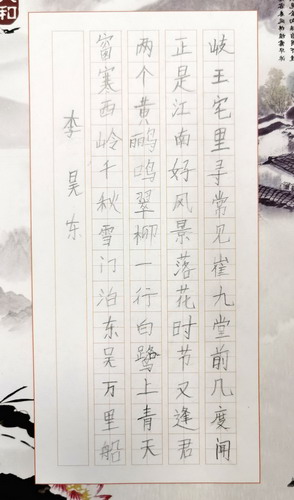 岐王宅里寻常见崔九堂前几度闻
正是江南好风景落花时节又逢君
两个黄鹂鸣翠柳一行白鹭上青天
窗寒西岭千秋雪门泊东吴万里船
李昊东
和